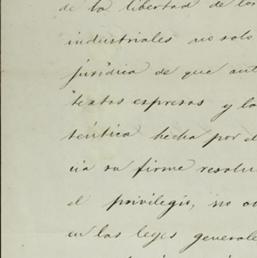 de la libertad de los
industriales no solo
jurídica de que ant
textos espresos y la
téntica hecha por el
cia su firme resolu
el privilegio, no o
en las leyes generale